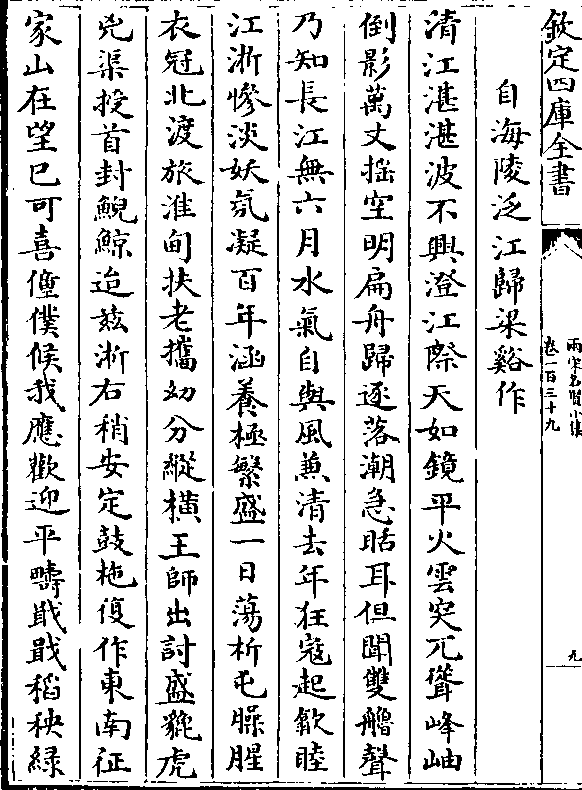 欽定四庫全書
兩宋名賢小集
卷一百三十九
九
自海陵泛江歸梁谿作
清江湛湛波不興澄江際天如鏡平火雲突兀聳峰岫
倒影萬丈揺空明扁舟歸逐落潮急聒耳但聞雙艣聲
乃知長江無六月水氣自與風兼清去年狂宼起歙睦
江浙慘淡妖氛凝百年涵養極繁盛一日蕩析屯臊腥
衣冠北渡旅淮甸扶老攜幼分縱橫王師出討盛貔虎
兇渠授首封鯢鯨迨兹浙右稍安定鼓柂復作東南征
家山在望已可喜僮僕候我應歡迎平疇戢戢稻秧緑